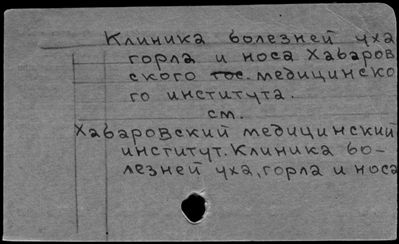 Клиника болезней уха
горла и носа Хабаров
ского гос. медицинско
го института.
см.
Хабаровский медицинский
институт. Клиника бо-
лезней уха, горла и носа